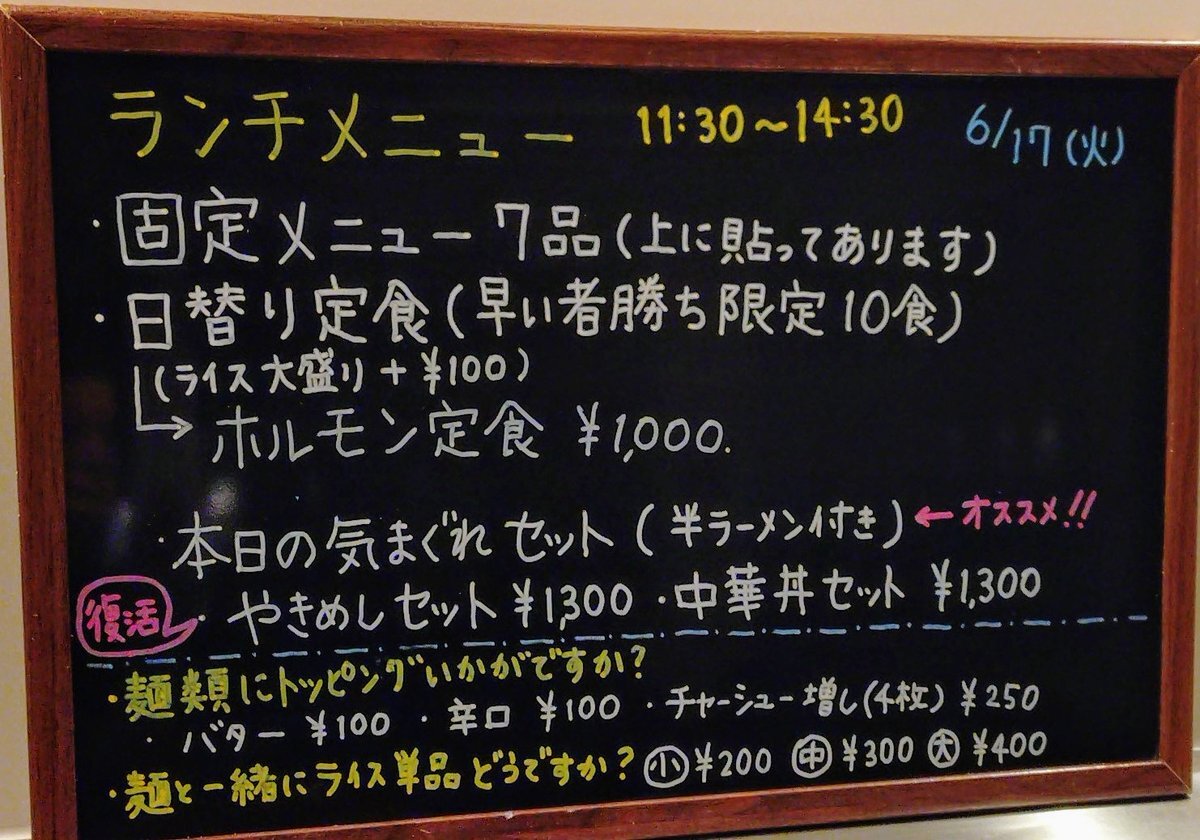 ランチメニュー 11:30～14:30 6/17(火)
・固定メニュー7品(上に貼ってあります)
・日替り定食(早い者勝ち限定10食)
(ライス大盛り+¥100)
ホルモン定食 ¥1,000.
・本日の気まぐれセット(半ラーメン付き)←オススメ!!
復活 ・やきめしセット¥1,300 ・中華丼セット ¥1,300
・麺類にトッピングいかがですか?
・バター ¥100 ・辛口 ¥100 ・チャーシュー増し(4枚) ¥250
・麺と一緒にライス単品どうですか? 小¥200 中¥300 大¥400